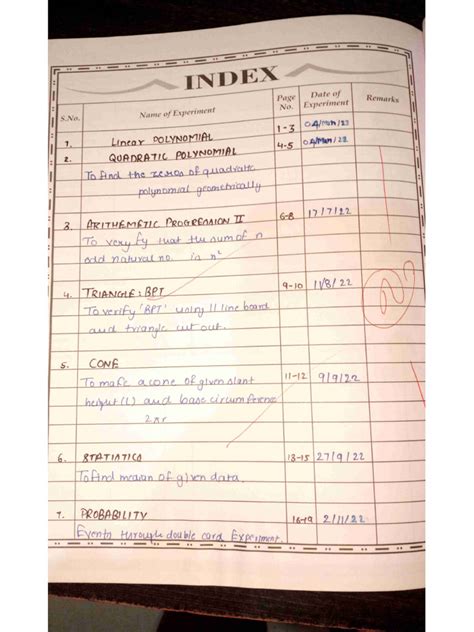 INDEX
S.No. Name of Experiment Page No. Date of Experiment Remarks
1. Linear POLYNOMIAL 1-3
2. QUADRATIC POLYNOMIAL 4-5
To find the zeros of quadratic
polynomial geometrically
3. ARITHEMETIC PROGRESSION II 6-8 17/7/22
To veryfy that the sum of n
odd natural no. is n²
4. TRIANGLE: BPT 9-10 11/8/22
To verify 'BPT' using 11 line board
and triangle cut out.
5. CONE
To make a cone of given slant 11-12 9/9/22
height (l) and base circumference
2πr
6. STATIATICS 13-15 27/9/22
To find mean of given data.
7. PROBABILITY 16-19 2/11/22
Events through double card Experiment.